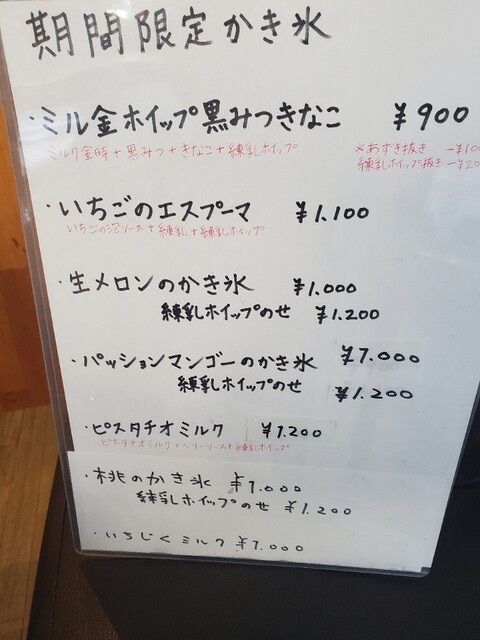 期間限定かき氷
・ミル金ホイップ黒みつきなこ ¥900
ミルク金時+黒みつ+きなこ+練乳ホイップ ※あずき抜き -¥10
練乳ホイップ抜き -¥20
・いちごのエスプーマ ¥1.100
いちごの泡ソース+練乳+練乳ホイップ
・生メロンのかき氷 ¥1.000
練乳ホイップのせ ¥1.200
・パッションマンゴーのかき氷 ¥1.000
練乳ホイップのせ ¥1.200
・ピスタチオミルク ¥1.200
ピスタチオミルク+ベリーソース+練乳ホイップ
・桃のかき氷 ¥1.000
練乳ホイップのせ ¥1.200
・いちじくミルク ¥1.000